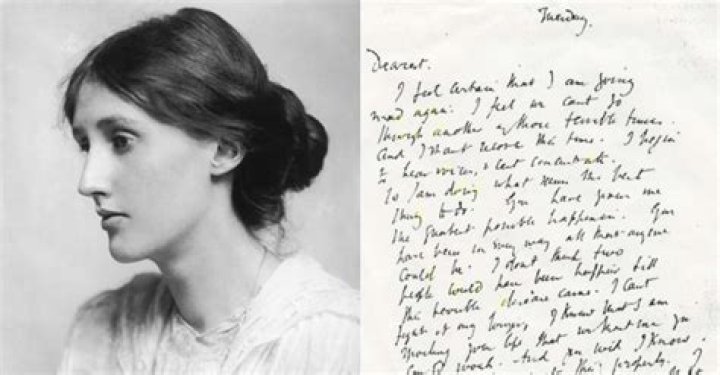 Tuesday.
Dearest.
I feel certain that I am going
mad again: I feel we cant go
through another of those terrible times.
And I shant recover this time. I begin
to hear voices, & cant concentrate.
So I am doing what seems the best
thing to do. You have given me
the greatest possible happiness. You
have been in every way all that anyone
could be. I dont think two
people could have been happier till
this terrible disease came. I cant
fight it any longer, I know that I am
spoiling your life, that without me you
could work. And you will I know.
this properly. I